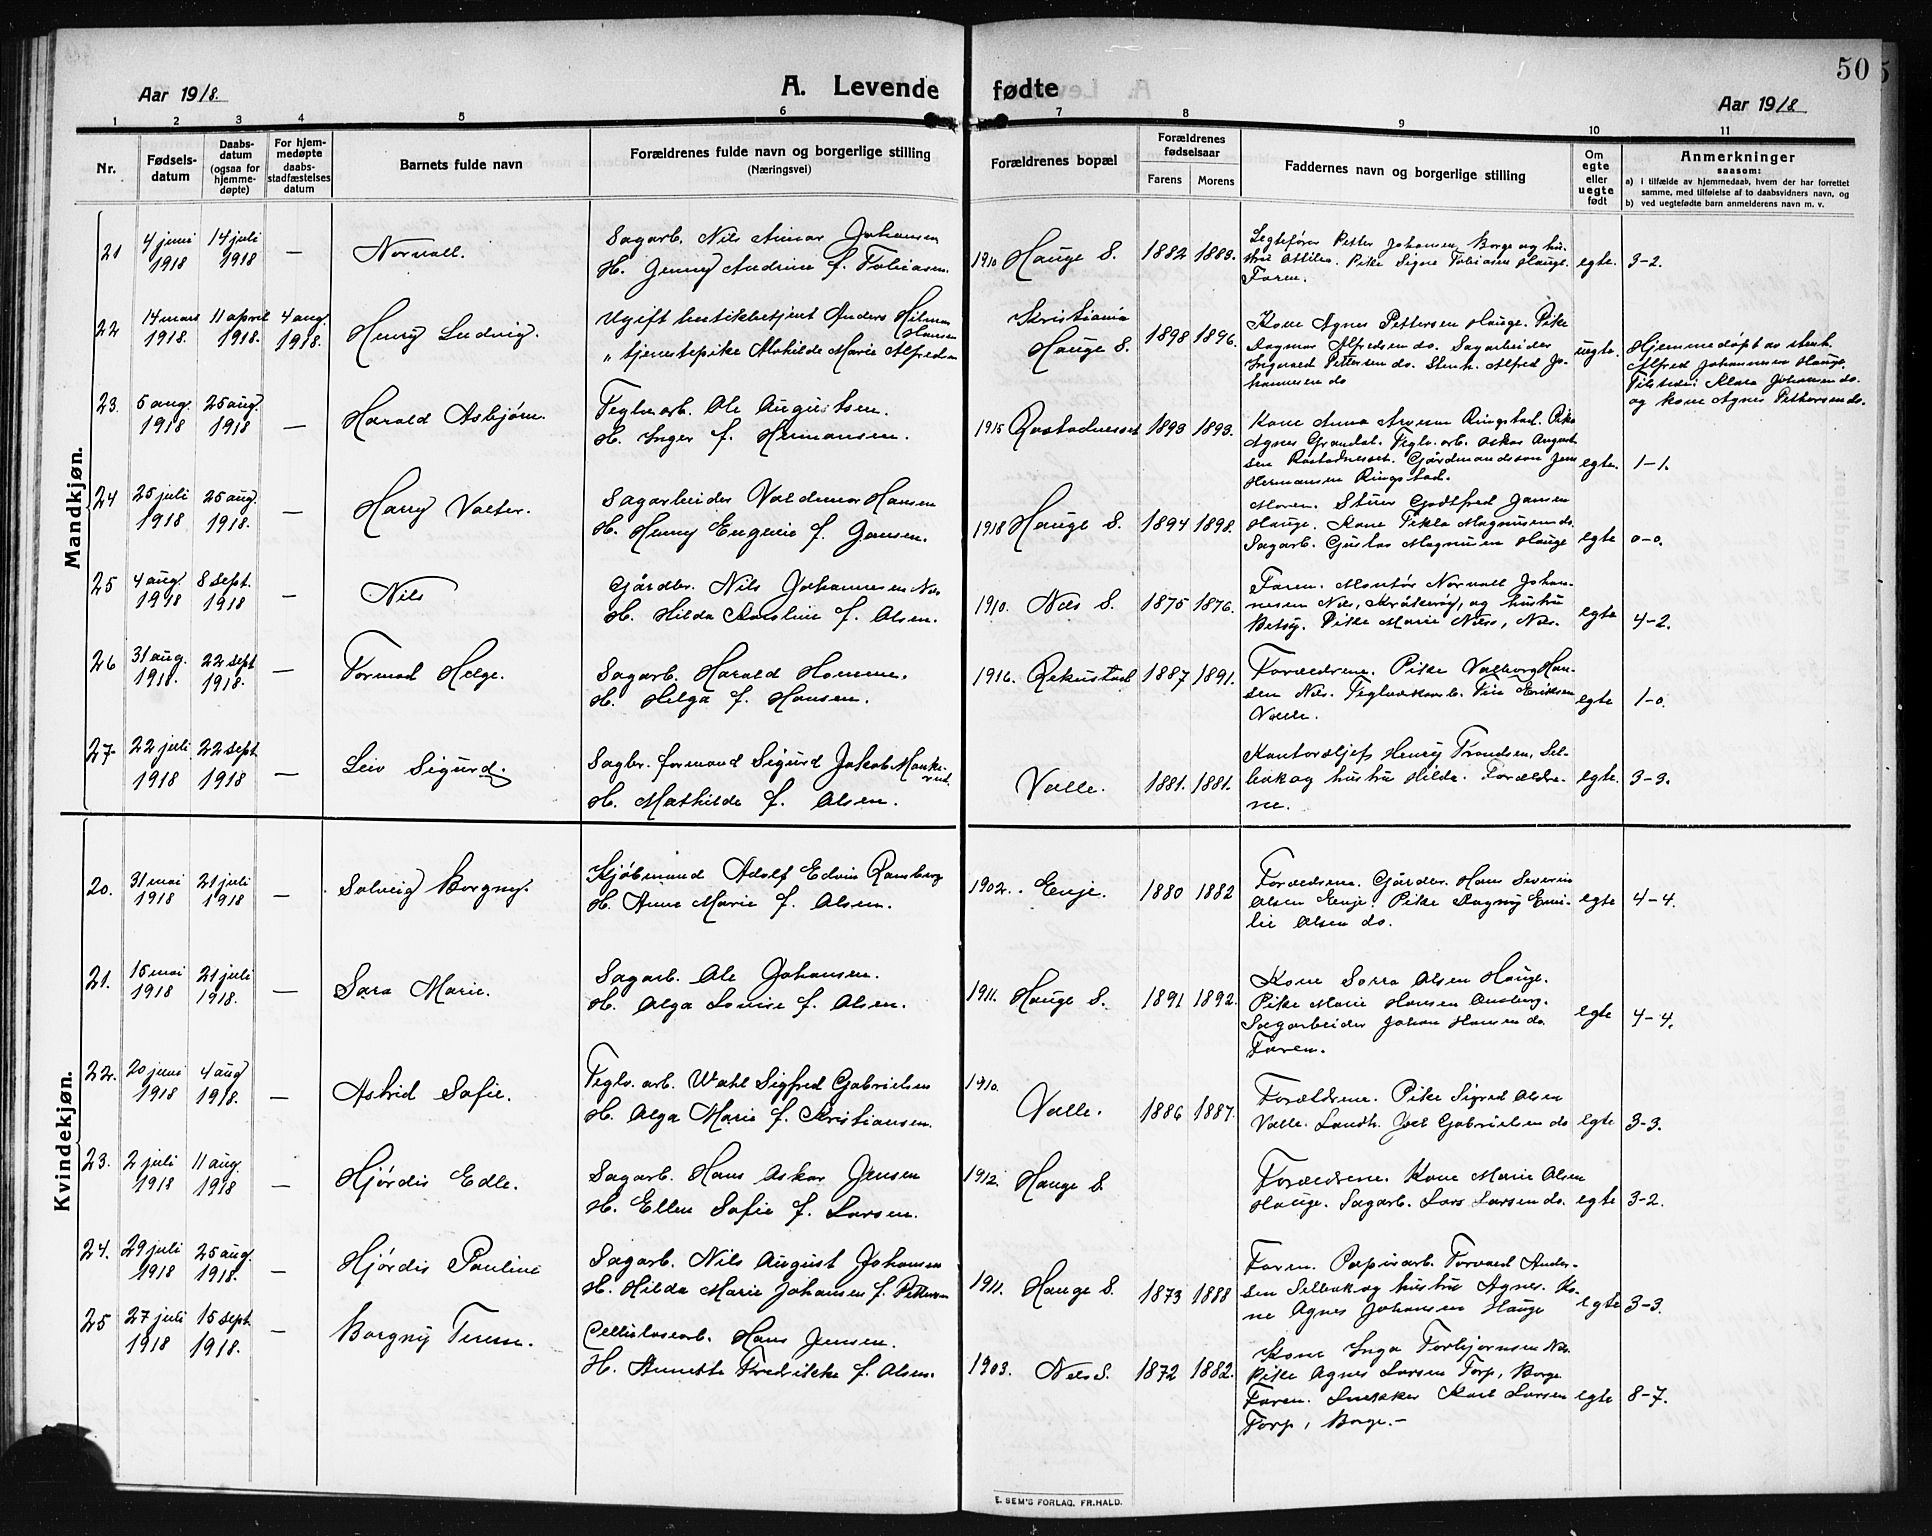 50
Aar 1918.
A. Levende fødte
Aar 1918
1 2 3 4 5 6 7 8 9 10 11
Nr.
Fødsels-
datum
Daabs-
datum
(ogsaa for
hjemme-
døpte)
For hjem-
medøpte
daabs
stadfæstelses
datum
Barnets fulde navn
Forældrenes fulde navn og borgerlige stilling
(Næringsvei)
Forældrenes bopæl
Forældrenes
fødselsaar
Farens Morens
Faddernes navn og borgerlige stilling
Om
egte
eller
uegte
født
Anmerkninger
saasom:
a) i tilfælde av hjemmedaab, hvem der har forrettet
samme, med tilføielse af to daabsvidners navn, og
b) ved uegtefødte barn anmelderens navn m. v.
Mandkjøn.
21 4 juni 1918 14 juli 1918 — Norvall.
Sagarb. Nils Aimar Johansen
H. Jenny Andrine f. Tobiasen.
1910 Hauge S. 1882 1883.
Petter Johansen, Borge og hu-
stru Pike Signe Tobiasen Hauge.
Faren.
egte. 3-2.
22 14 mars 1918. 11 april 1918. 4 aug. 1918. Henry Ludvig.
Ugift butikbetjent Anders Hilmar
Hansen
„ tjenestepike Mathilde Marie Alfredsen
Kristiania
Hauge S. 1898 1896.
Kone Agnes Pettersen Hauge. Pike
Dagmar Alfredsen do. Sagarbeider
Ingvald Pettersen do. Stenh. Alfred Jo-
hannesen do
uegte.
Hjemmedøpt av stenh.
Alfred Johannesen Hauge.
Tilstede: Klara Johansen do.
og kone Agnes Pettersen do.
23. 5 aug. 1918 25 aug. 1918 — Harald Asbjørn.
Teglv.arb. Ole Augustsen.
H. Inger f. Hermansen.
1915 Rostadnesset 1893 1893.
Kone Anna Ringstad. Pike
Agnes Teglv. arb. Oskar August-
sen Rostadnesset. Gårdmandssøn Jens
Hermansen Ringstad.
egte. 1-1.
24 25 juli 1918 25 aug. 1918. — Harry Valter.
Sagarbeider Valdemar Hansen
H. Henny Eugenie f. Jansen.
1918 Hauge S. 1894 1898.
Moren. Godtfred Jansen
Hauge. Kone Tekla Magnusen do.
Sagarb. Gustav Magnusen Hauge
egte 0-0.
25 4 aug. 1918 8 sept. 1918 — Nils
Gårdbr. Nils Johannesen Næs
H. Hilda Karoline f. Olsen.
1910. Næs S. 1875 1876.
Faren. Montør Norvall Johan-
nesen Næs, Kråkerøy, og hustru
Betsy. Pike Marie Næss, Næs.
egte 4-2.
26 31 aug. 1918. 22 sept 1918. — Tormod Helge.
Sagarb. Harald Homme.
H. Helga f. Hansen.
1916. Rekustad 1887 1891.
Forældrene. Pike Valborg Han-
sen Næs. Eriksen
Valle.
egte 1-0.
27. 22 juli 1918 22 sept 1918 — Leiv Sigurd.
Sagbr. formand Sigurd Jakob
H. Mathilde f. Olsen.
Valle. 1881. 1881.
Kontorchef Henry Trondsen, Sel-
bak og hustru Hilda. Forældre-
ne.
egte. 3-3.
Kvindekjøn.
20. 31 mai 1918 21 juli 1918 — Solveig Borgny.
Kjøbmand Adolf Edvin Ramberg
H. Anne Marie f. Olsen.
1902. Enge. 1880 1882
Forældrene. Gårdbr. Hans Severin
Olsen Enge. Pike Dagny Emi-
lie Olsen do.
egte 4-4.
21. 15 mai 1918 21 juli 1918. — Sara Marie.
Sagarb. Ole Johansen.
H. Olga Lovise f. Olsen.
1911. Hauge S. 1891 1892.
Kone Sarra Olsen Hauge.
Pike Marie Hansen
Sagarbeider Johan Hansen do.
Faren.
egte 4-4.
22. 20 juni 1918 4 aug 1918. — Astrid Sofie.
Teglv. arb. Wahl Sigfred Gabrielsen
H. Olga Marie f. Kristiansen.
1910. Valle. 1886 1887.
Forældrene. Pike Sigrid Olsen
Valle. Landh. Joel Gabrielsen do
egte 3-3.
23. 2 juli 1918 11 aug. 1918 — Hjørdis Edle.
Sagarb. Hans Oskar Jensen
H. Ellen Sofie f. Larsen.
1912 Hauge S.
Forældrene. Kone Marie Olsen
Hauge. Sagarb. Lars Larsen do.
egte 3-2.
24. 29 juli 1918 25 aug. 1918. — Hjørdis Pauline
Sagarb. Nils August Johansen
H. Hilda Marie Johansen f. Pettersen
1911. Hauge S. 1873 1888
Faren. Papirarb. Torvald Ander-
sen Selbak og hustru Agnes. Ko-
ne Agnes Johansen Hauge
egte 3-3.
25 27 juli 1918 15 sept. 1918. — Borgny Terese.
Cellulosearb. Hans Jensen.
H. Annette Fredrikke f. Olsen.
1903. Næs S. 1872 1882.
Kone Inga Torbjørnsen Næs.
Pike Agnes Larsen Torp, Borge
Faren. Snekker Karl Larsen
Torp, Borge.—
egte 8-7.
E. SEM'S FORLAG, FR.HALD.